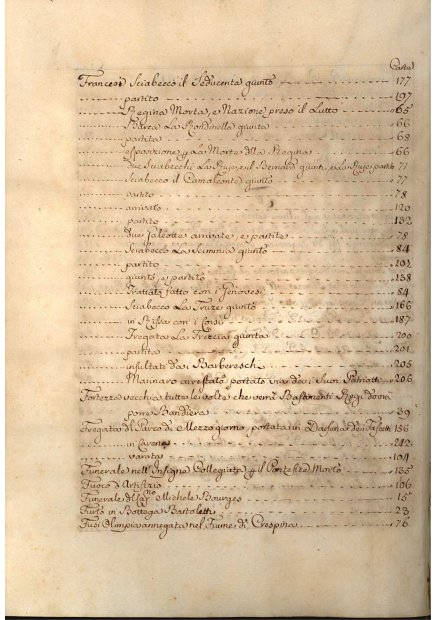 Carte
Francesi Sciabecco il Seducente giunto 177
partito 197
Regina Morta, e Nazione preso il Lutto 65
Barca La Rondinella giunta 66
partita 68
esposizione La Morte della Regina 66
due Sciabecchi La Ruse, e il giunti, e La Ruse partito 71
Sciabecco il Camaleonte giunto 77
partito 78
arrivato 120
partito 132
due Galeotte arrivate, e partite 78
Sciabecco La Scimmia giunto 84
partito
giunto, e partito 138
Trattato fatto con i Genovesi 84
Sciabecco La giunto 166
in Rissa con i Corsi 187
Fregata La giunta 200
partita 201
insultati dai Barbereschi 205
Mainaro arrestato portato via dai Suoi Patriotti 206
Fortezza vecchia tutte le volte che verrà Bastimenti Regi dovrà
porre Bandiera 39
Fregata di Parco di Mezzogiorno portata in Darsena dei 156
in Carena 242
varata 104
Funerale nell'Insigne Collegiata il Pontefice Morto 135
Fuoco d'Artifizio 106
Funerale del Michele Bourges 15
Furto in Bottega Bartoletti 23
Fusi Olimpia annegata nel Fiume di Crespina 76